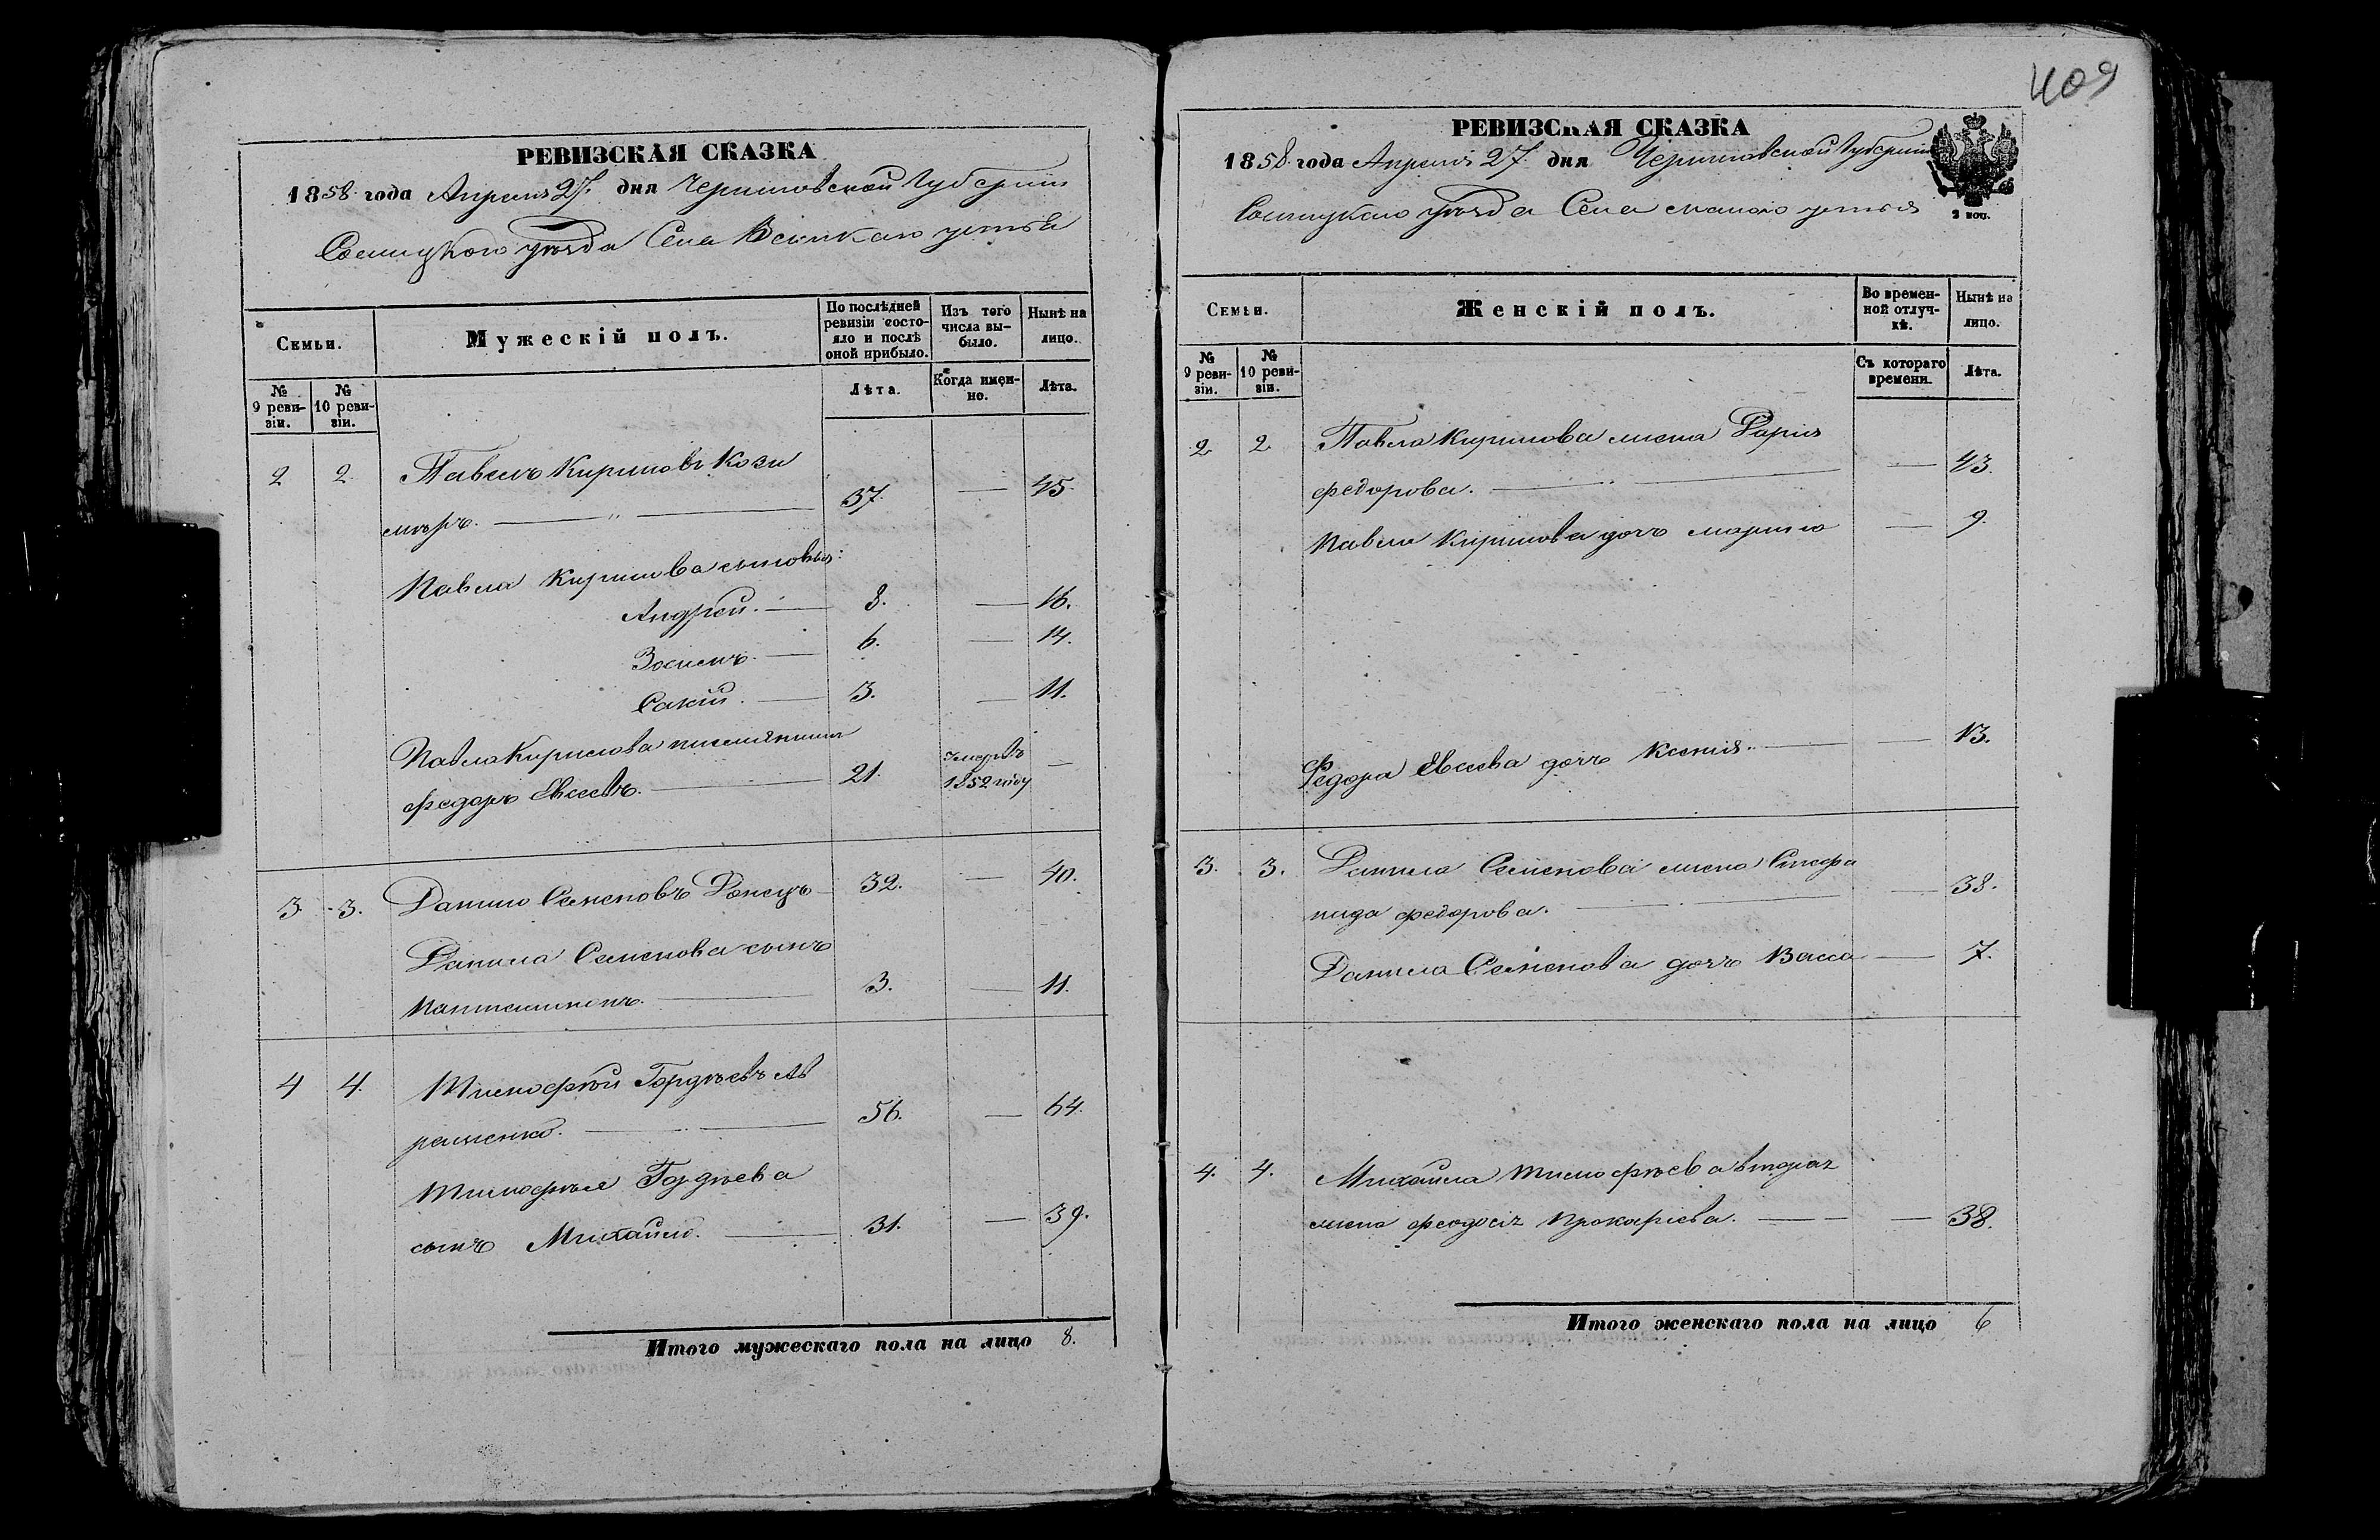 РЕВИЗСКАЯ СКАЗКА
1858 года Апреля 27. дня Черниговской Губернии
Сосницкого уѣзда Села Великаго устья
Семьи.
Мужескій полъ.
По послѣдней ревизіи состояло и послѣ оной прибыло.
Изъ того числа выбыло.
Нынѣ на лицо.
№ 9 ревизіи.
№ 10 ревизіи.
Лѣта.
Когда именно.
Лѣта.
2 2. Павелъ Кириловъ Кози
миръ. — " — 37. — 45.
Павла Кирилова сыновья:
Андрей. — 8. — 16.
Зосимъ. — 6. — 14.
Сакій. — 3. — 11.
Павла Кирилова племянникъ
федоръ Евсеевъ. — 21. умеръ въ 1852 году —
3. 3. Данило Семеновъ Донецъ — 32. — 40.
Данила Семенова сынъ
Пантелимонъ. — 3. — 11.
4 4. Тимофѣй Гордѣевъ Ав
раменко. — 56. — 64.
Тимофѣя Гордѣева
сынъ Михайло. — 31. — 39.
Итого мужескаго пола на лицо 8.
409
РЕВИЗСКАЯ СКАЗКА
1858 года Апреля 27. дня Черниговской Губернии
Сосницкаго уѣзда Села устья
2 коп.
Семьи.
Женскій полъ.
Во временной отлучкѣ.
Нынѣ на лицо.
№ 9 ревизіи.
№ 10 ревизіи.
Съ котораго времени.
Лѣта.
2 2 Павла Кирилова жена Дарія
федорова. — — 43.
Павла Кирилова дочь — 9.
Федора Евсеева дочь Ксенія. — — 13.
3. 3. Данила Семенова жена Стефа
нида федорова. — — 38.
Данила Семенова дочь Васса — 7.
4. 4. Михайла Тимофѣева вторая
жена феодосія Прокофіева. — — 38.
Итого женскаго пола на лицо 6